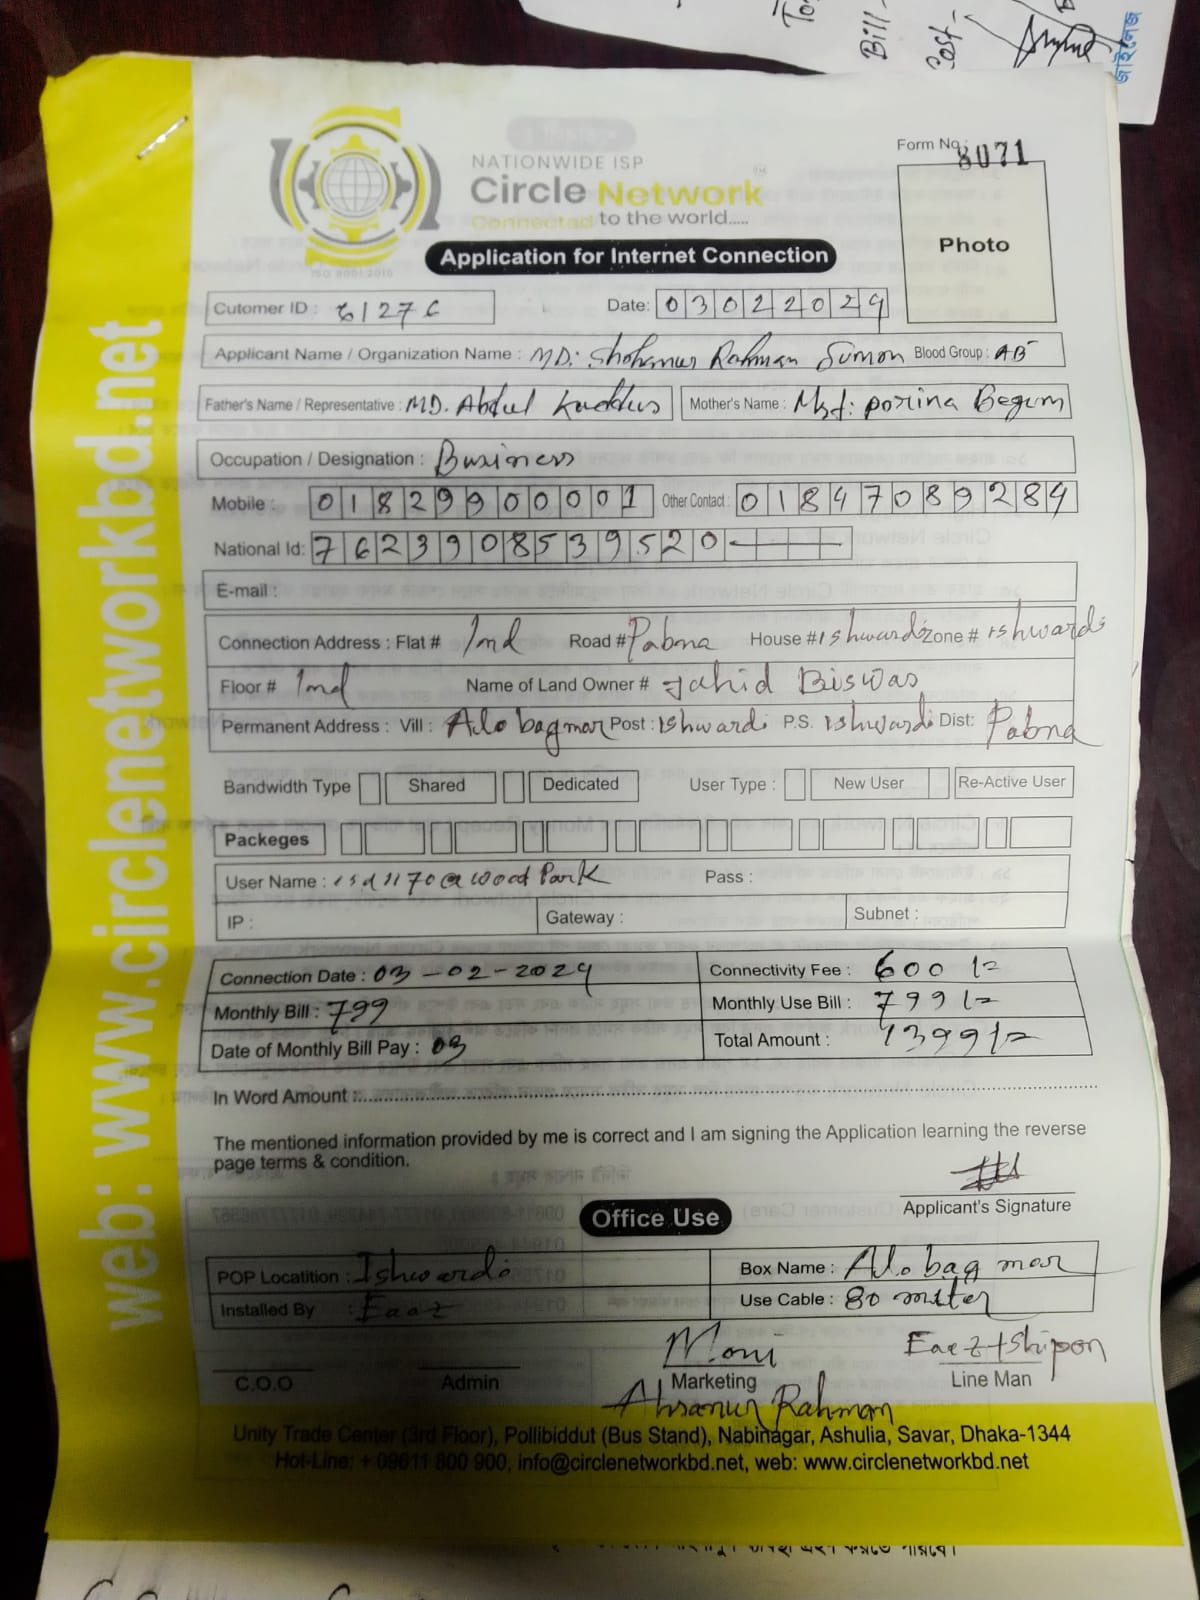 To
Bill -
Cost -
NATIONWIDE ISP
Circle Network
Connected to the world.....
ISO 9001:2015
Application for Internet Connection
Form No: 8071
Photo
Cutomer ID : 61276
Date: 03022024
Applicant Name / Organization Name : MD: Shohanur Rahman Sumon Blood Group : AB-
Father's Name / Representative : MD. Abdul Kuddus Mother's Name : Mst: porina Begum
Occupation / Designation : Business
Mobile : 01829900001 Other Contact : 01847089284
National Id: 7623908539520
E-mail :
Connection Address : Flat # 1nd Road # Pabna House # Ishwardi Zone # Ishwardi
Floor # 1nd Name of Land Owner # Jahid Biswas
Permanent Address : Vill : Alo bagmor Post : Ishwardi P.S. Ishwardi Dist: Pabna
Bandwidth Type Shared Dedicated User Type : New User Re-Active User
Packeges
User Name : isd1170@wood Park Pass :
IP : Gateway : Subnet :
Connection Date : 03-02-2024 Connectivity Fee : 600/=
Monthly Bill : 799 Monthly Use Bill : 799/=
Date of Monthly Bill Pay : 03 Total Amount : 1399/=
In Word Amount :
The mentioned information provided by me is correct and I am signing the Application learning the reverse
page terms & condition.
Applicant's Signature
Office Use
POP Locatition : Ishwardi Box Name : Alo bag mor
Installed By : Eaaz Use Cable : 80 miter
Moni Eaez+Shipon
C.O.O Admin Marketing Line Man
Ahsanur Rahman
Unity Trade Center (3rd Floor), Pollibiddut (Bus Stand), Nabinagar, Ashulia, Savar, Dhaka-1344
Hot-Line: + 09611 800 900, info@circlenetworkbd.net, web: www.circlenetworkbd.net
web: www.circlenetworkbd.net